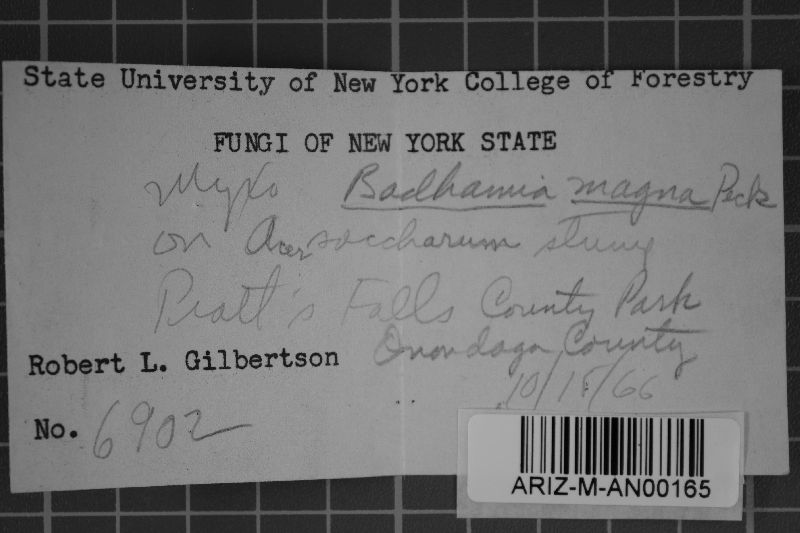 State University of New York College of Forestry
FUNGI OF NEW YORK STATE
Myxo Badhamia magna Peck
on Acer saccharum stump
Pratt's Falls County Park
Onondaga County
Robert L. Gilbertson
10/15/66
No. 6902
ARIZ-M-AN00165